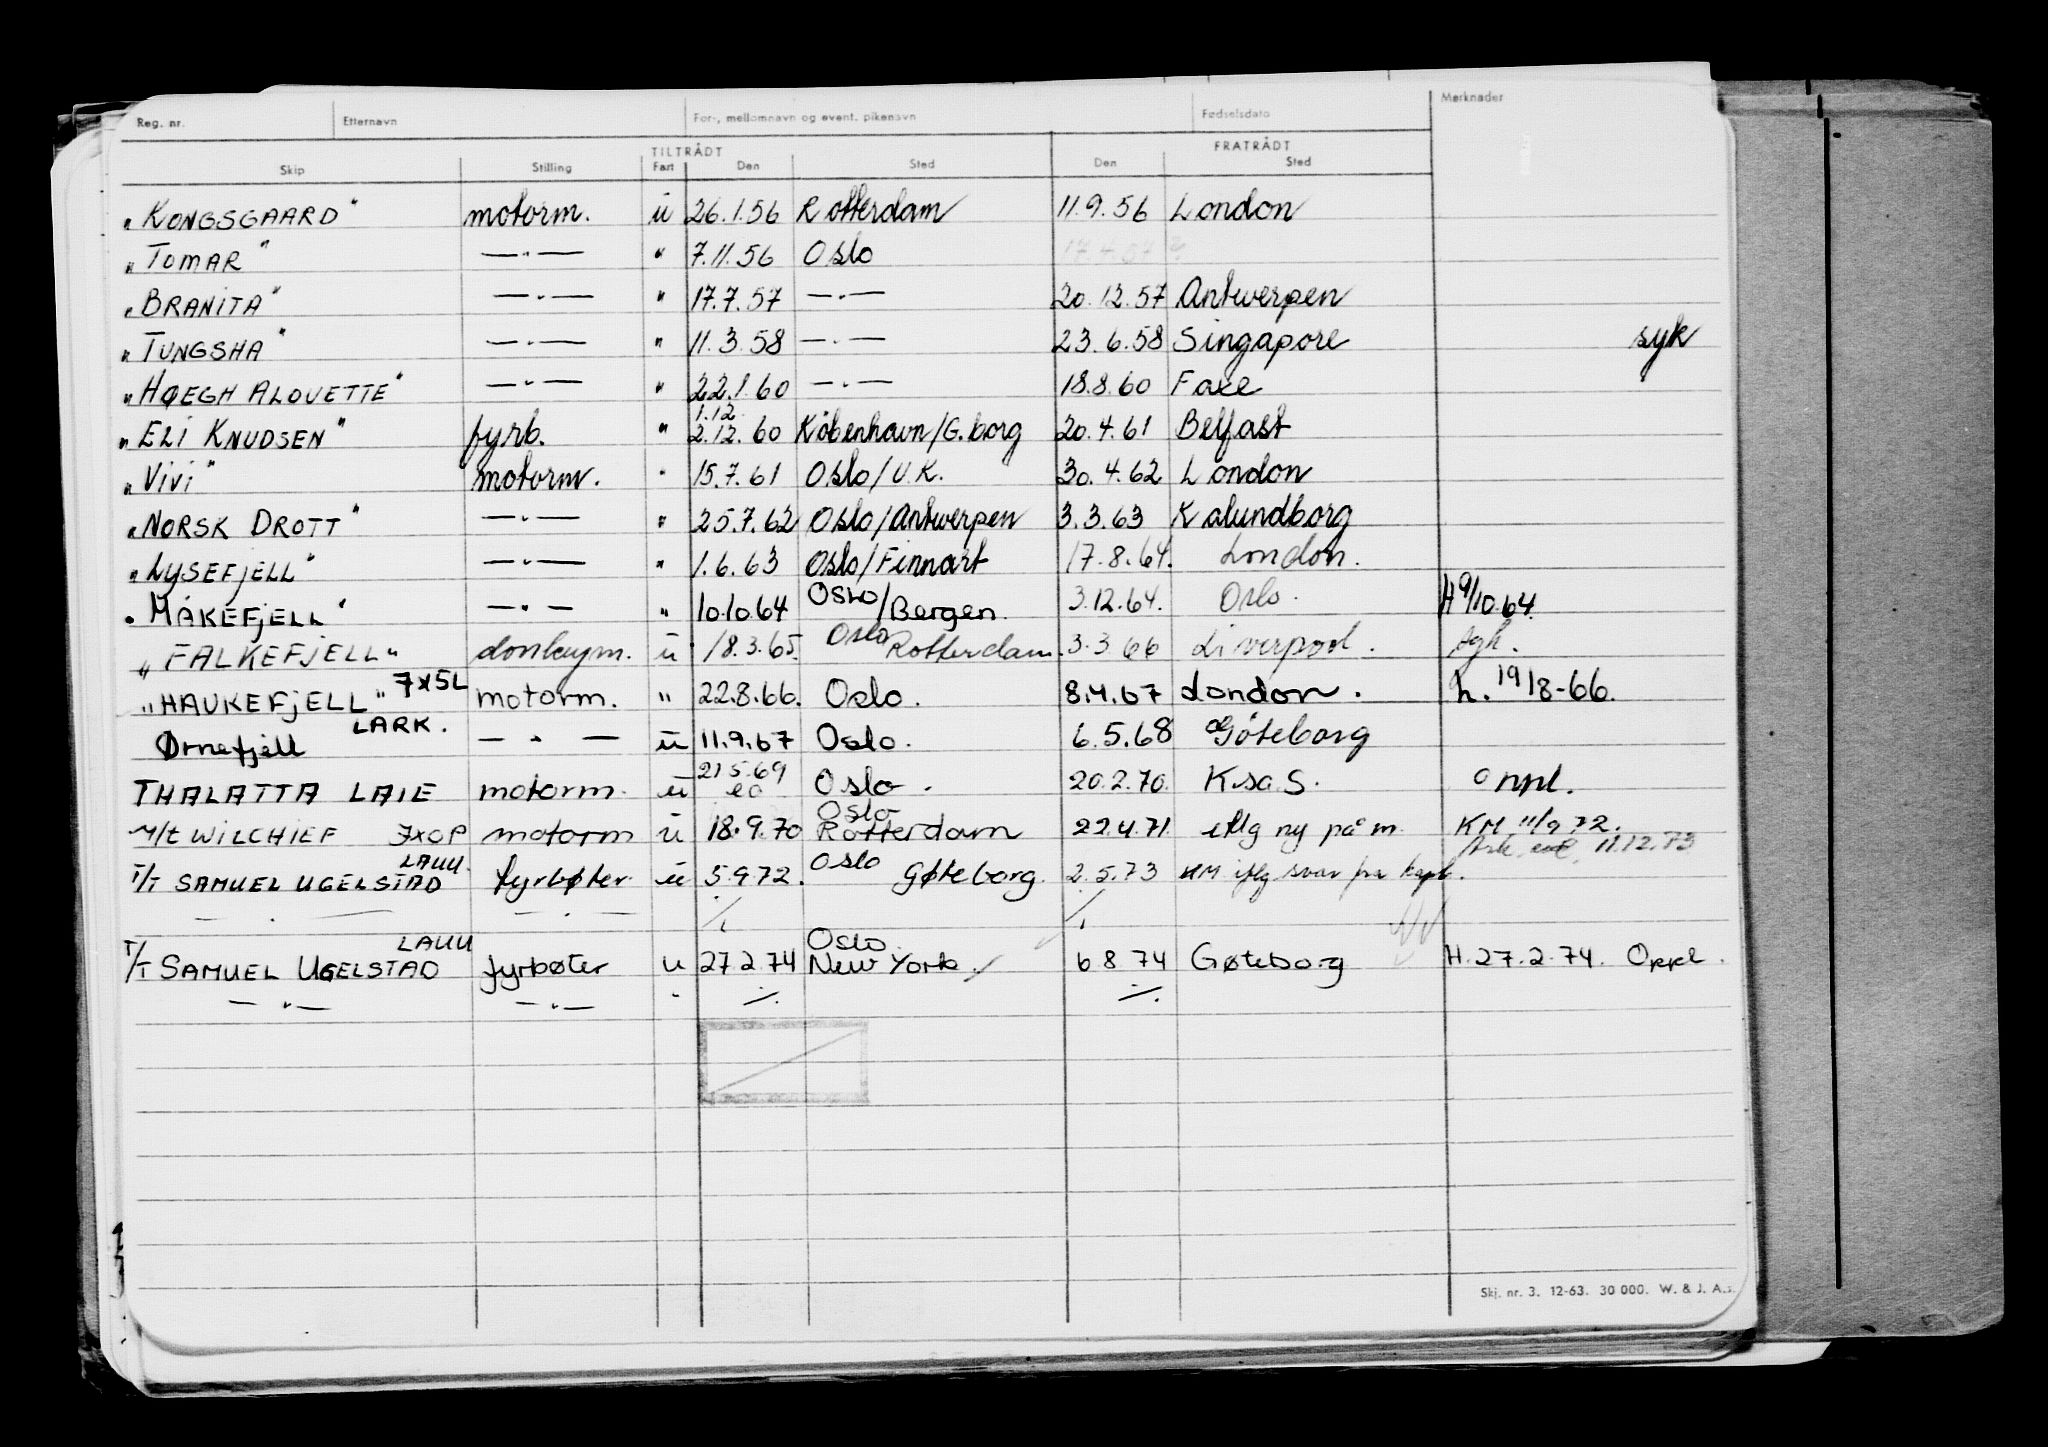 Reg. nr. Etternavn For-, mellomnavn og event. pikenavn Fødselsdato Merknader
TILTRÅDT FRATRÅDT
Skip Stilling Fart Den Sted Den Sted
"KONGSGAARD" motorm. u 26.1.56 Rotterdam 11.9.56 London
"TOMAR" —„— " 7.11.56 Oslo 17.4.57
"BRANITA" —„— " 17.7.57 —„— 20.12.57 Antwerpen
"TUNGSHA" —„— " 11.3.58 —„— 23.6.58 Singapore syk
"HØEGH ALOUETTE" —„— " 22.1.60 —„— 18.8.60 Faxe
1.12
"ELI KNUDSEN" fyrb. " 2.12.60 København/G.borg 20.4.61 Belfast
"VIVI" motorm. " 15.7.61 Oslo/U.K. 30.4.62 London
"NORSK DROTT" —„— " 25.7.62 Oslo/Antwerpen 3.3.63 Kalundborg
"LYSEFJELL" —„— " 1.6.63 Oslo/Finnart 17.8.64. London.
"MÅKEFJELL" —„— " 10.10.64 Oslo/Bergen 3.12.64. Oslo. H 9/10.64.
"FALKEFJELL" donkeym. u 18.3.65. Oslo Rotterdam. 3.3.66 Liverpool.
"HAUKEFJELL" 7x5L motorm. " 22.8.66. Oslo. 8.4.67 London. h. 19/8-66.
LARK.
Ørnefjell —„— u 11.9.67 Oslo. 6.5.68 Göteborg
21.5.69
THALATTA LAIE motorm. u ca Oslo. 20.2.70. K.sa S. oppl.
Oslo
M/T WILCHIEF JXOP motorm u 18.9.70 Rotterdam 22.4.71. iflg ny på m. KM 11/9 72.
11.12.73
LAUU Oslo
T/T SAMUEL UGELSTAD fyrbøter u 5.9.72. Gøteborg. 2.5.73 KM iflg svar fra kapt.
—.— —.— ./. ./.
LAUU Oslo
T/T SAMUEL UGELSTAD fyrbøter u 27.2.74 New York. 6.8.74 Gøteborg H.27.2.74. Oppl.
—„— —„— " ./. ./.
Skj. nr. 3. 12-63. 30 000. W. & J. A.s.